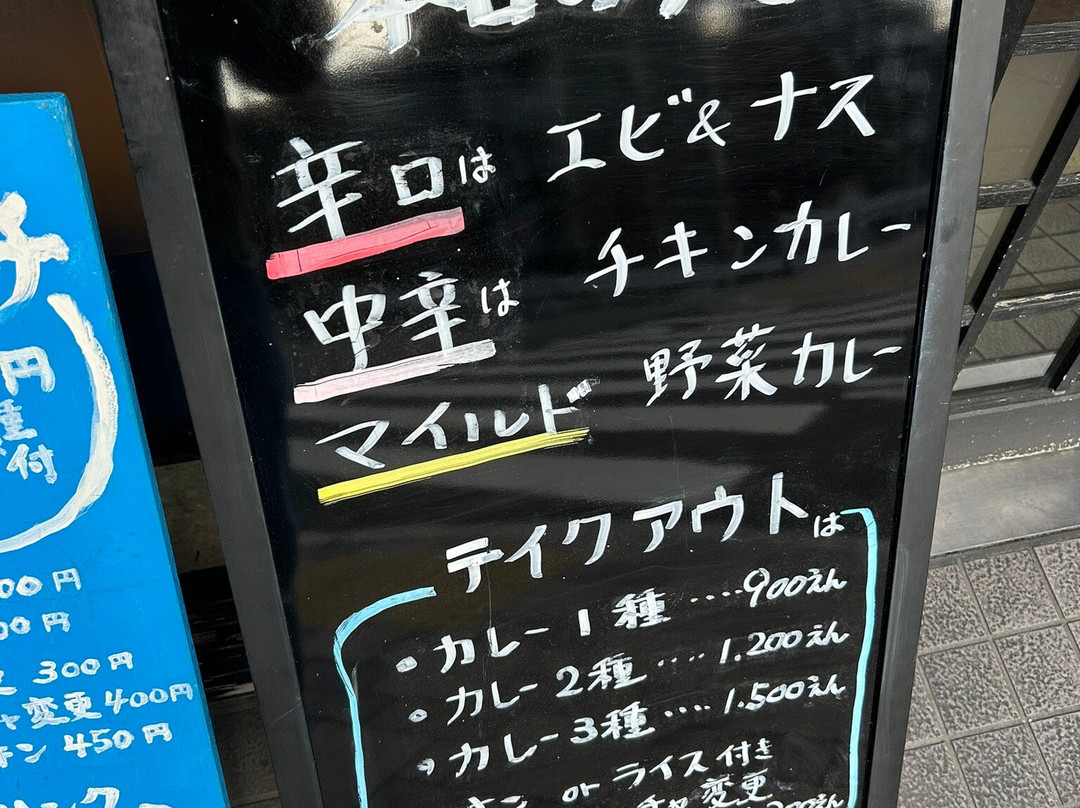 辛口は エビ&ナス
中辛は チキンカレー
マイルド 野菜カレー
テイクアウトは
・カレー1種 ‥‥900えん
・カレー2種 ‥‥1.200えん
・カレー3種 ‥‥1.500えん
or ライス付き
変更
チ
円
種
付
00円
00円
300円
変更400円
キン 450円